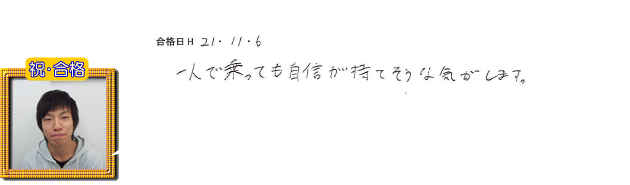 合格日H 21・11・6
祝・合格
一人で乗っても自信が持てそうな気がします。